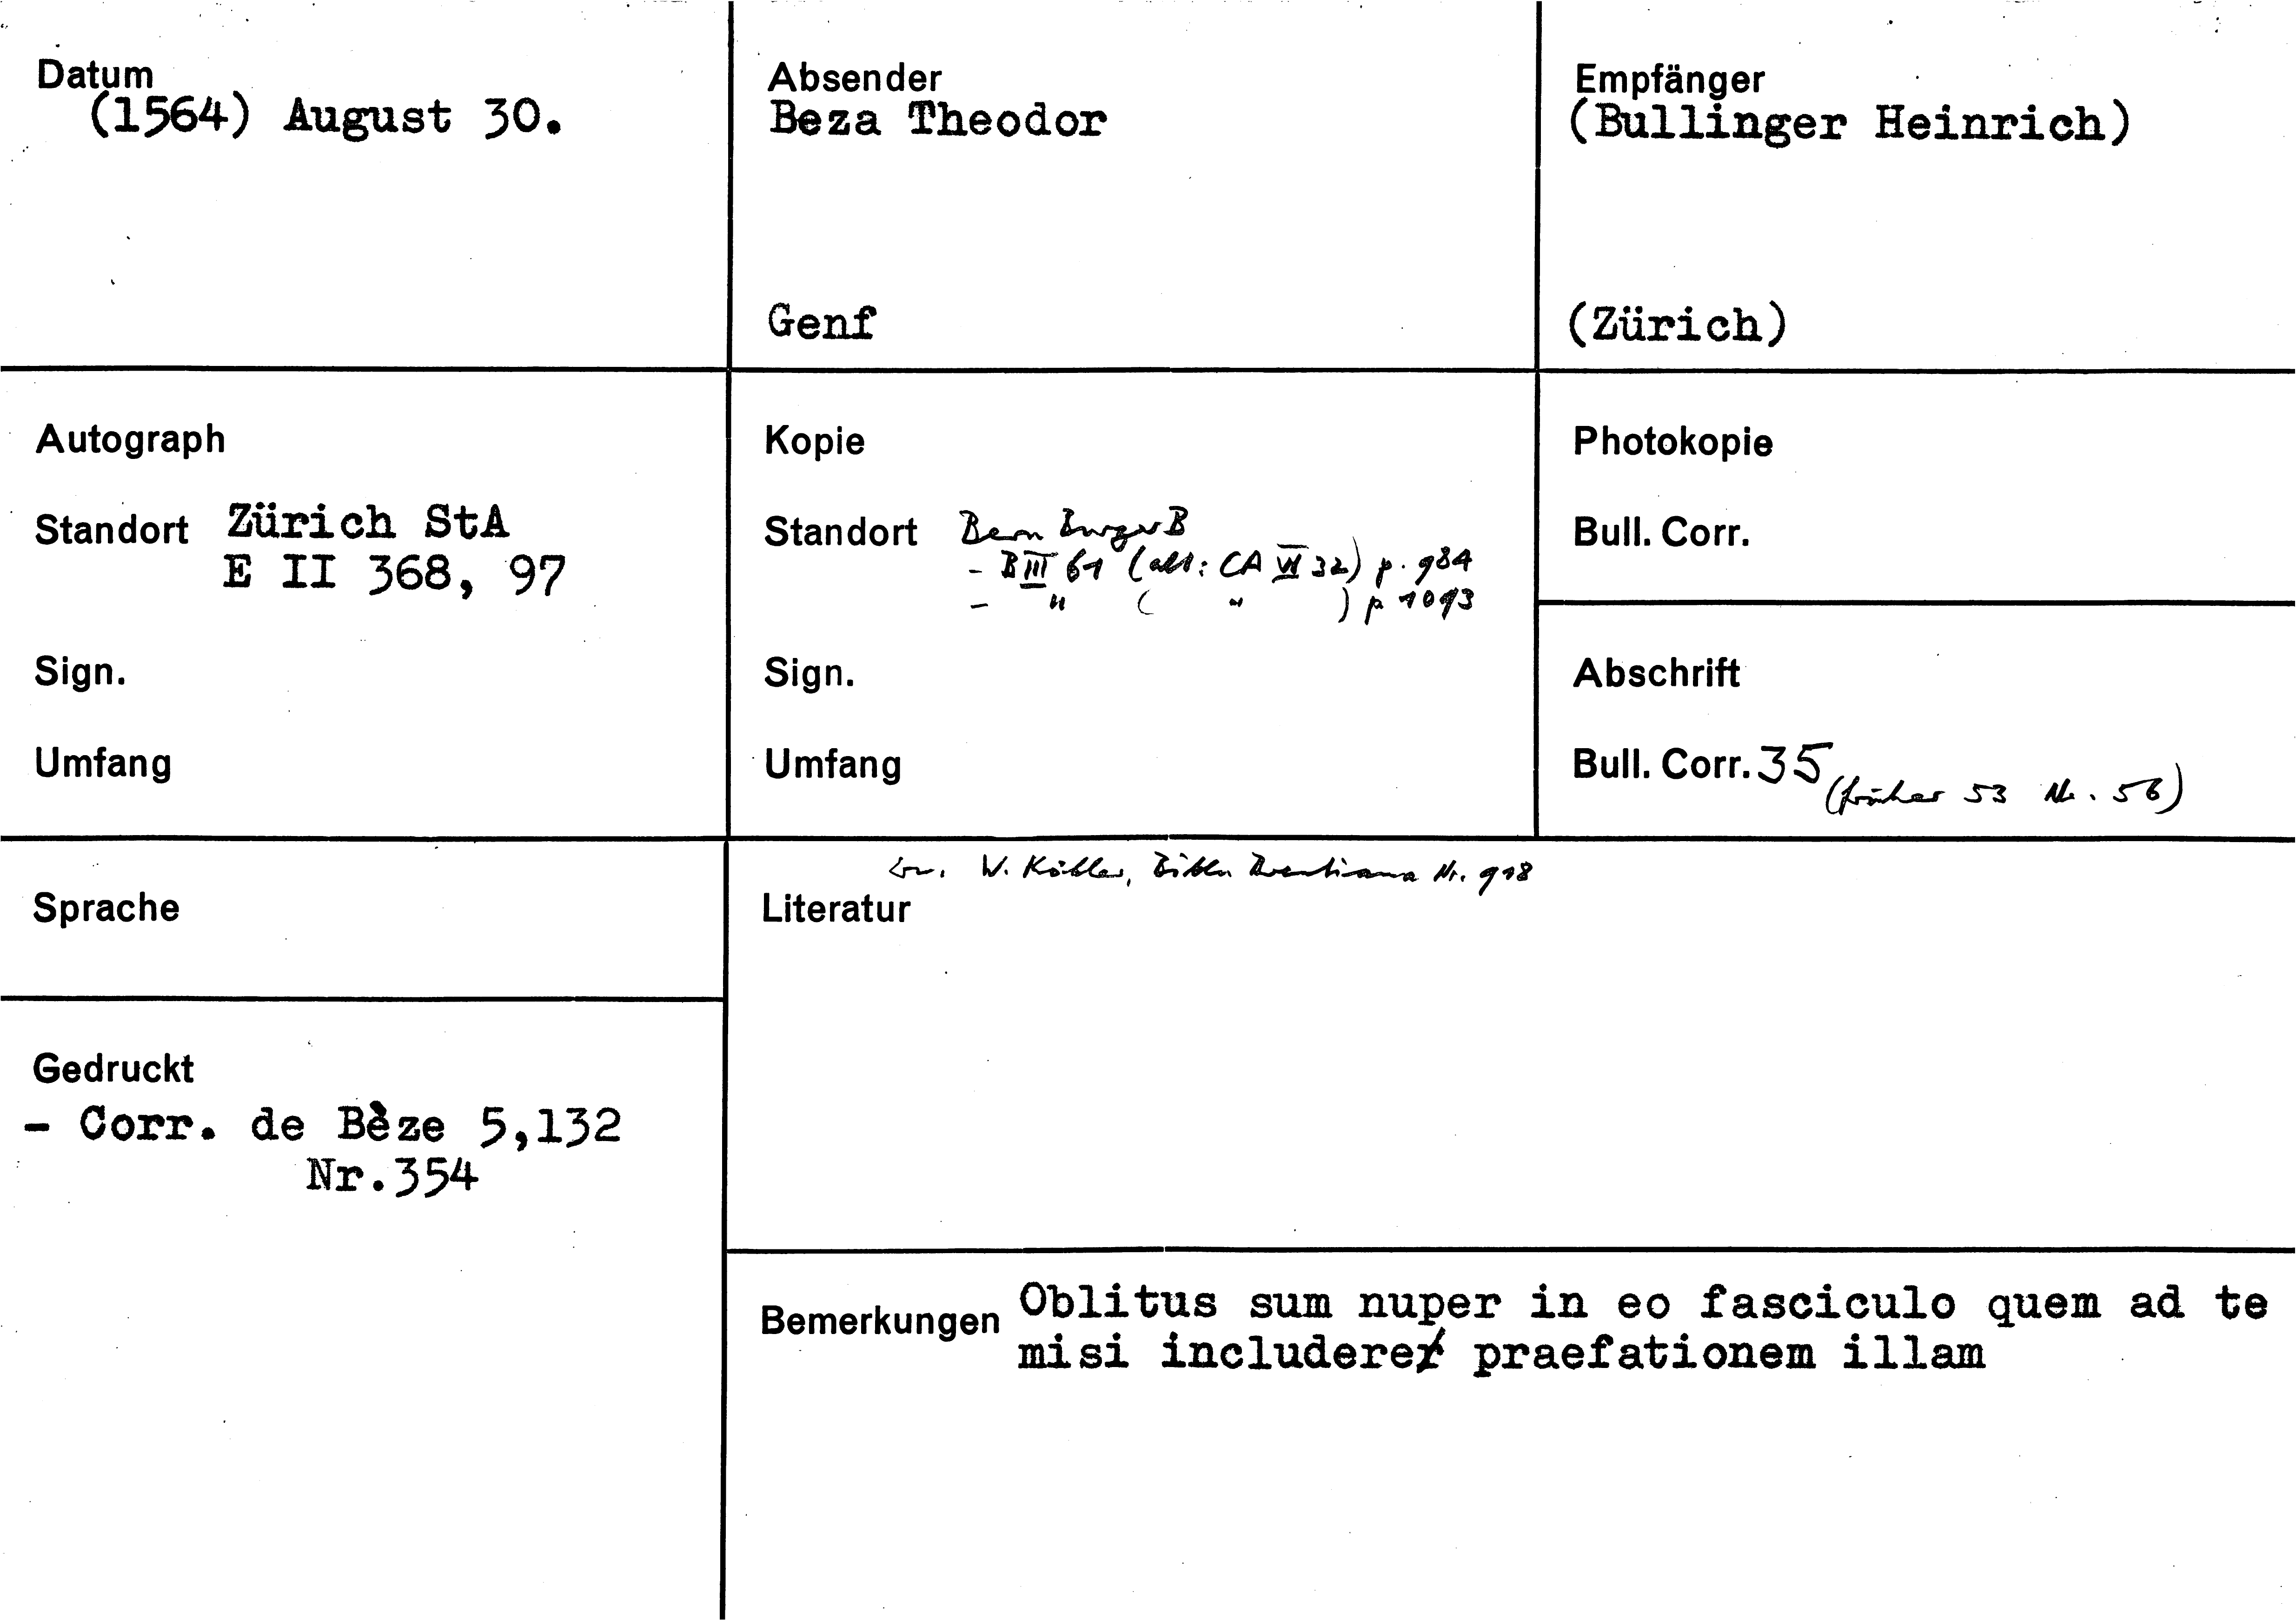 Datum
(1564) August 30.
Absender
Beza Theodor
Genf
Empfänger
(Bullinger Heinrich)
(Zürich)
Autograph
Standort Zürich StA
E II 368, 97
Sign.
Umfang
Kopie
Standort Bern BurgerB
- B III 61 (alt: CA VI 32) p. 984
- " ( " ) p 1093
Sign.
Umfang
Photokopie
Bull. Corr.
Abschrift
Bull. Corr. 35 (früher 53 Nr. 56)
Sprache
Gedruckt
- Corr. de Bèze 5,132
Nr.354
W. Köhler, Bibl. Brentiana Nr. 918
Literatur
Bemerkungen Oblitus sum nuper in eo fasciculo quem ad te
misi includere praefationem illam